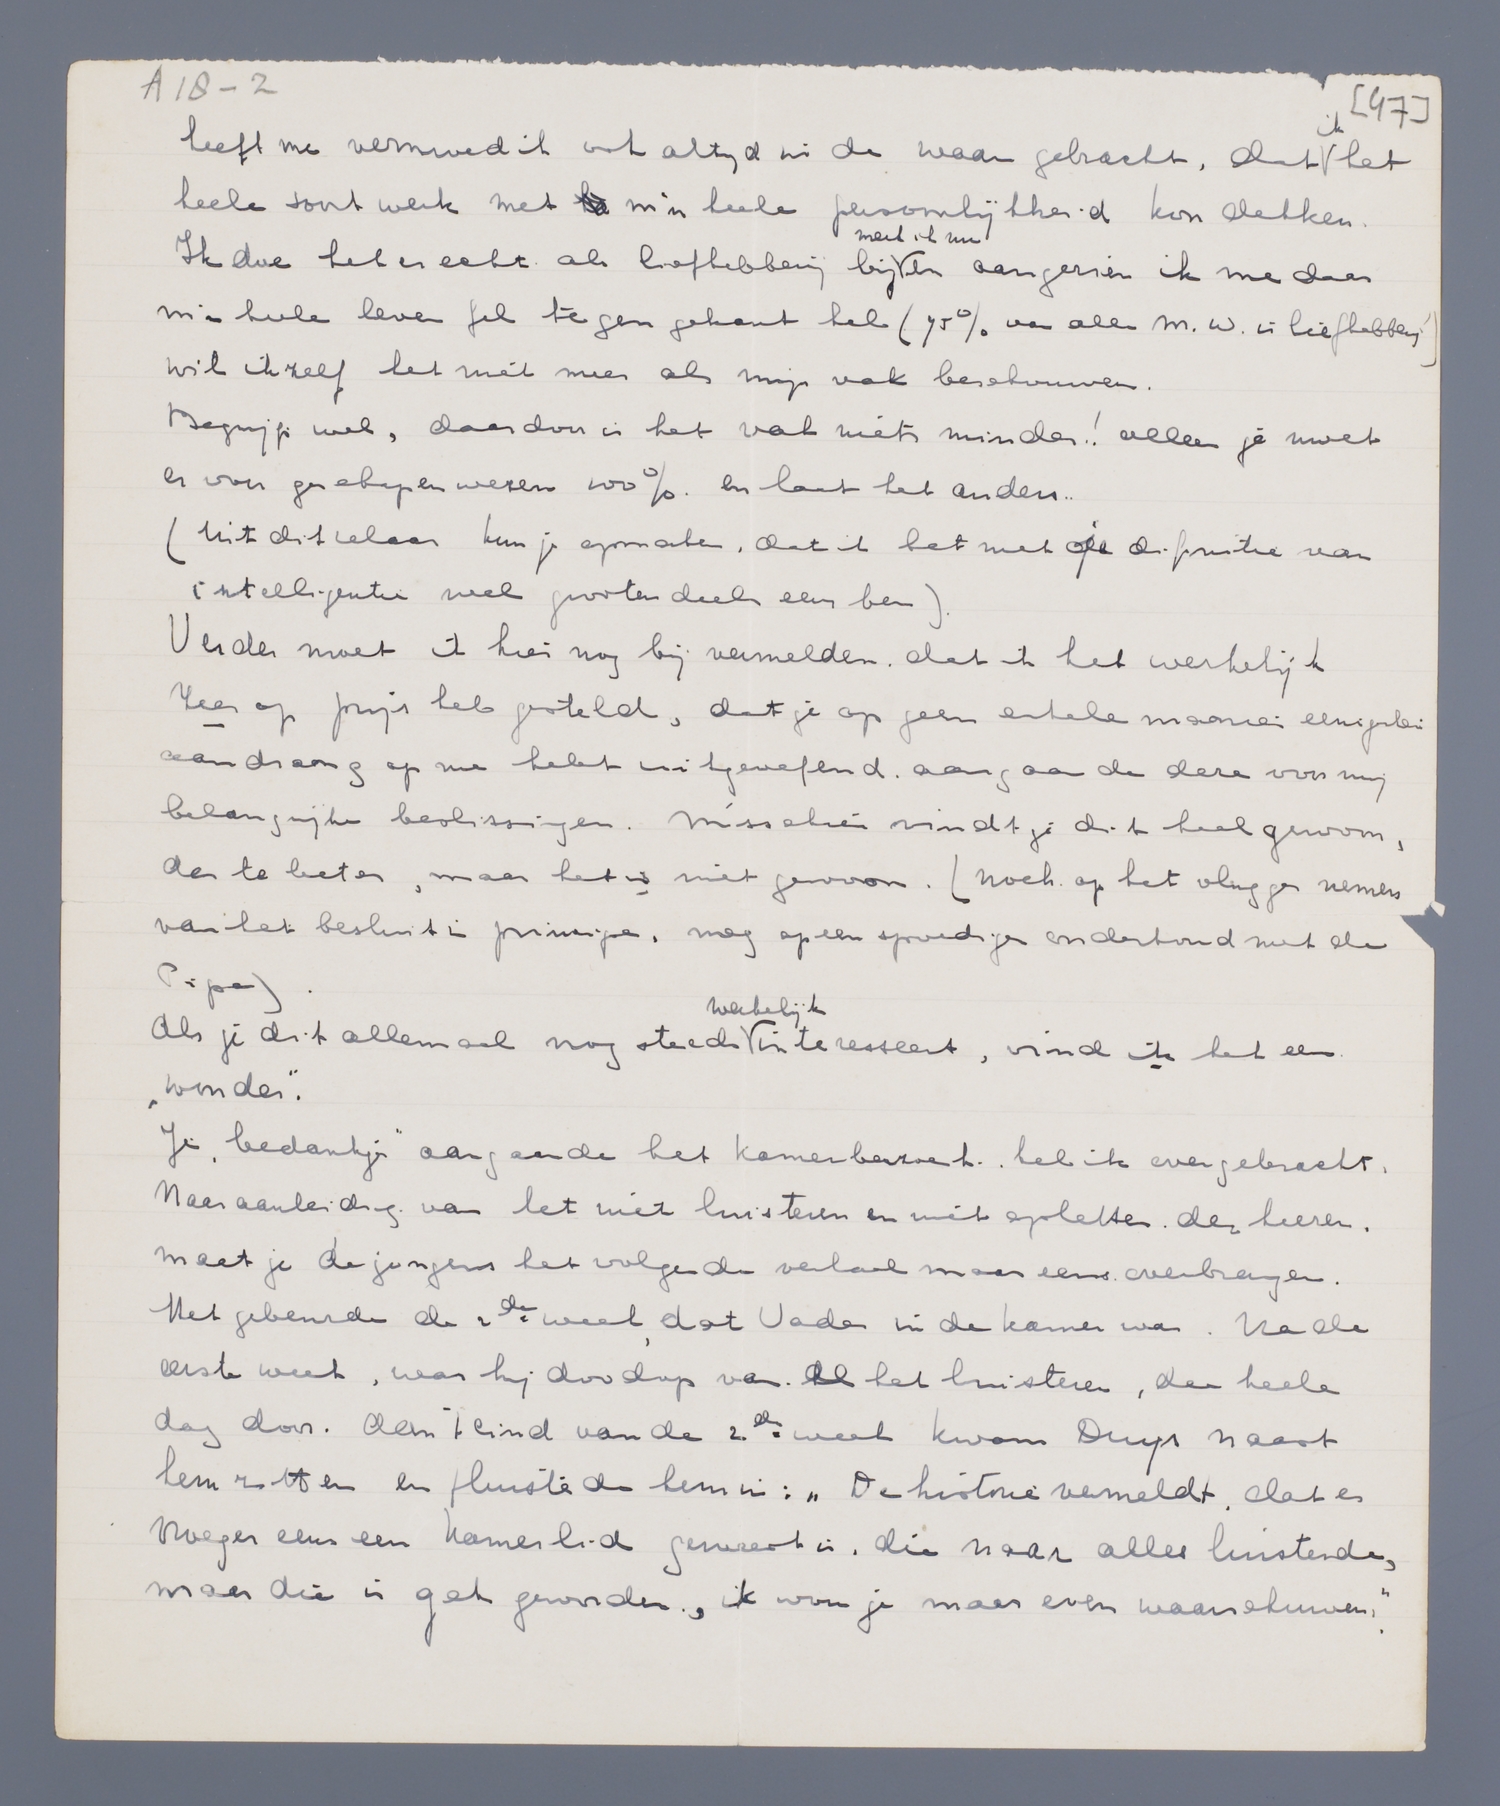 A 18 - 2
[47]
heeft me vermoed ik ook altyd in de waan gebracht, dat ik het
heele soort werk met m'n heele persoonlijkheid kon dekken.
Ik doe het er echt als liefhebberij bij merk ik nu en aangezien ik me daar
m'n heele leven fel tegen gekant heb (75% van alle M.W. is liefhebberij!)
wil ik zelf het niét meer als mijn vak beschouwen.
Begrijp wel, daardoor is het vak niéts minder! alleen je moet
er voor geschapen wezen 100%. en laat het anders..
(Uit dit relaas kun je opmaken, dat ik het met de definitie van
intelligentie wel grootendeels eens ben).
Verder moet ik hier nog bij vermelden. dat ik het werkelijk
zeer op prijs heb gesteld, dat je op geen enkele manier eenigerlei
aandrang op me hebt uitgeoefend. aangaande deze voor mij
belangrijke beslissingen. Misschien vindt je dit heel gewoon,
des te beter, maar het is niét gewoon. (Noch op het vlugger nemen
van het besluit in principe, nog op een spoediger onderhoud met de
Pipa).
Als je dit allemaal nog steeds werkelijk interesseert, vind ik het een
„wonder".
Je „bedankje" aangaande het Kamerbezoek. heb ik overgebracht.
Naar aanleiding van het niét luisteren en niét opletten der heeren.
moet je de jongens het volgende verhaal maar eens overbrengen.
Het gebeurde de 2de week, dat Vader in de kamer was. Na de
eerste week, was hij doodop van al het luisteren, den heele
dag door. Aan 't eind van de 2de week kwam Duys naast
hem zitten en fluisterde hem in: „De historie vermeldt, dat er
vroeger eens een Kamerlid geweest is, die naar alles luisterde,
maar die is gek geworden., ik wou je maar even waarschuwen."